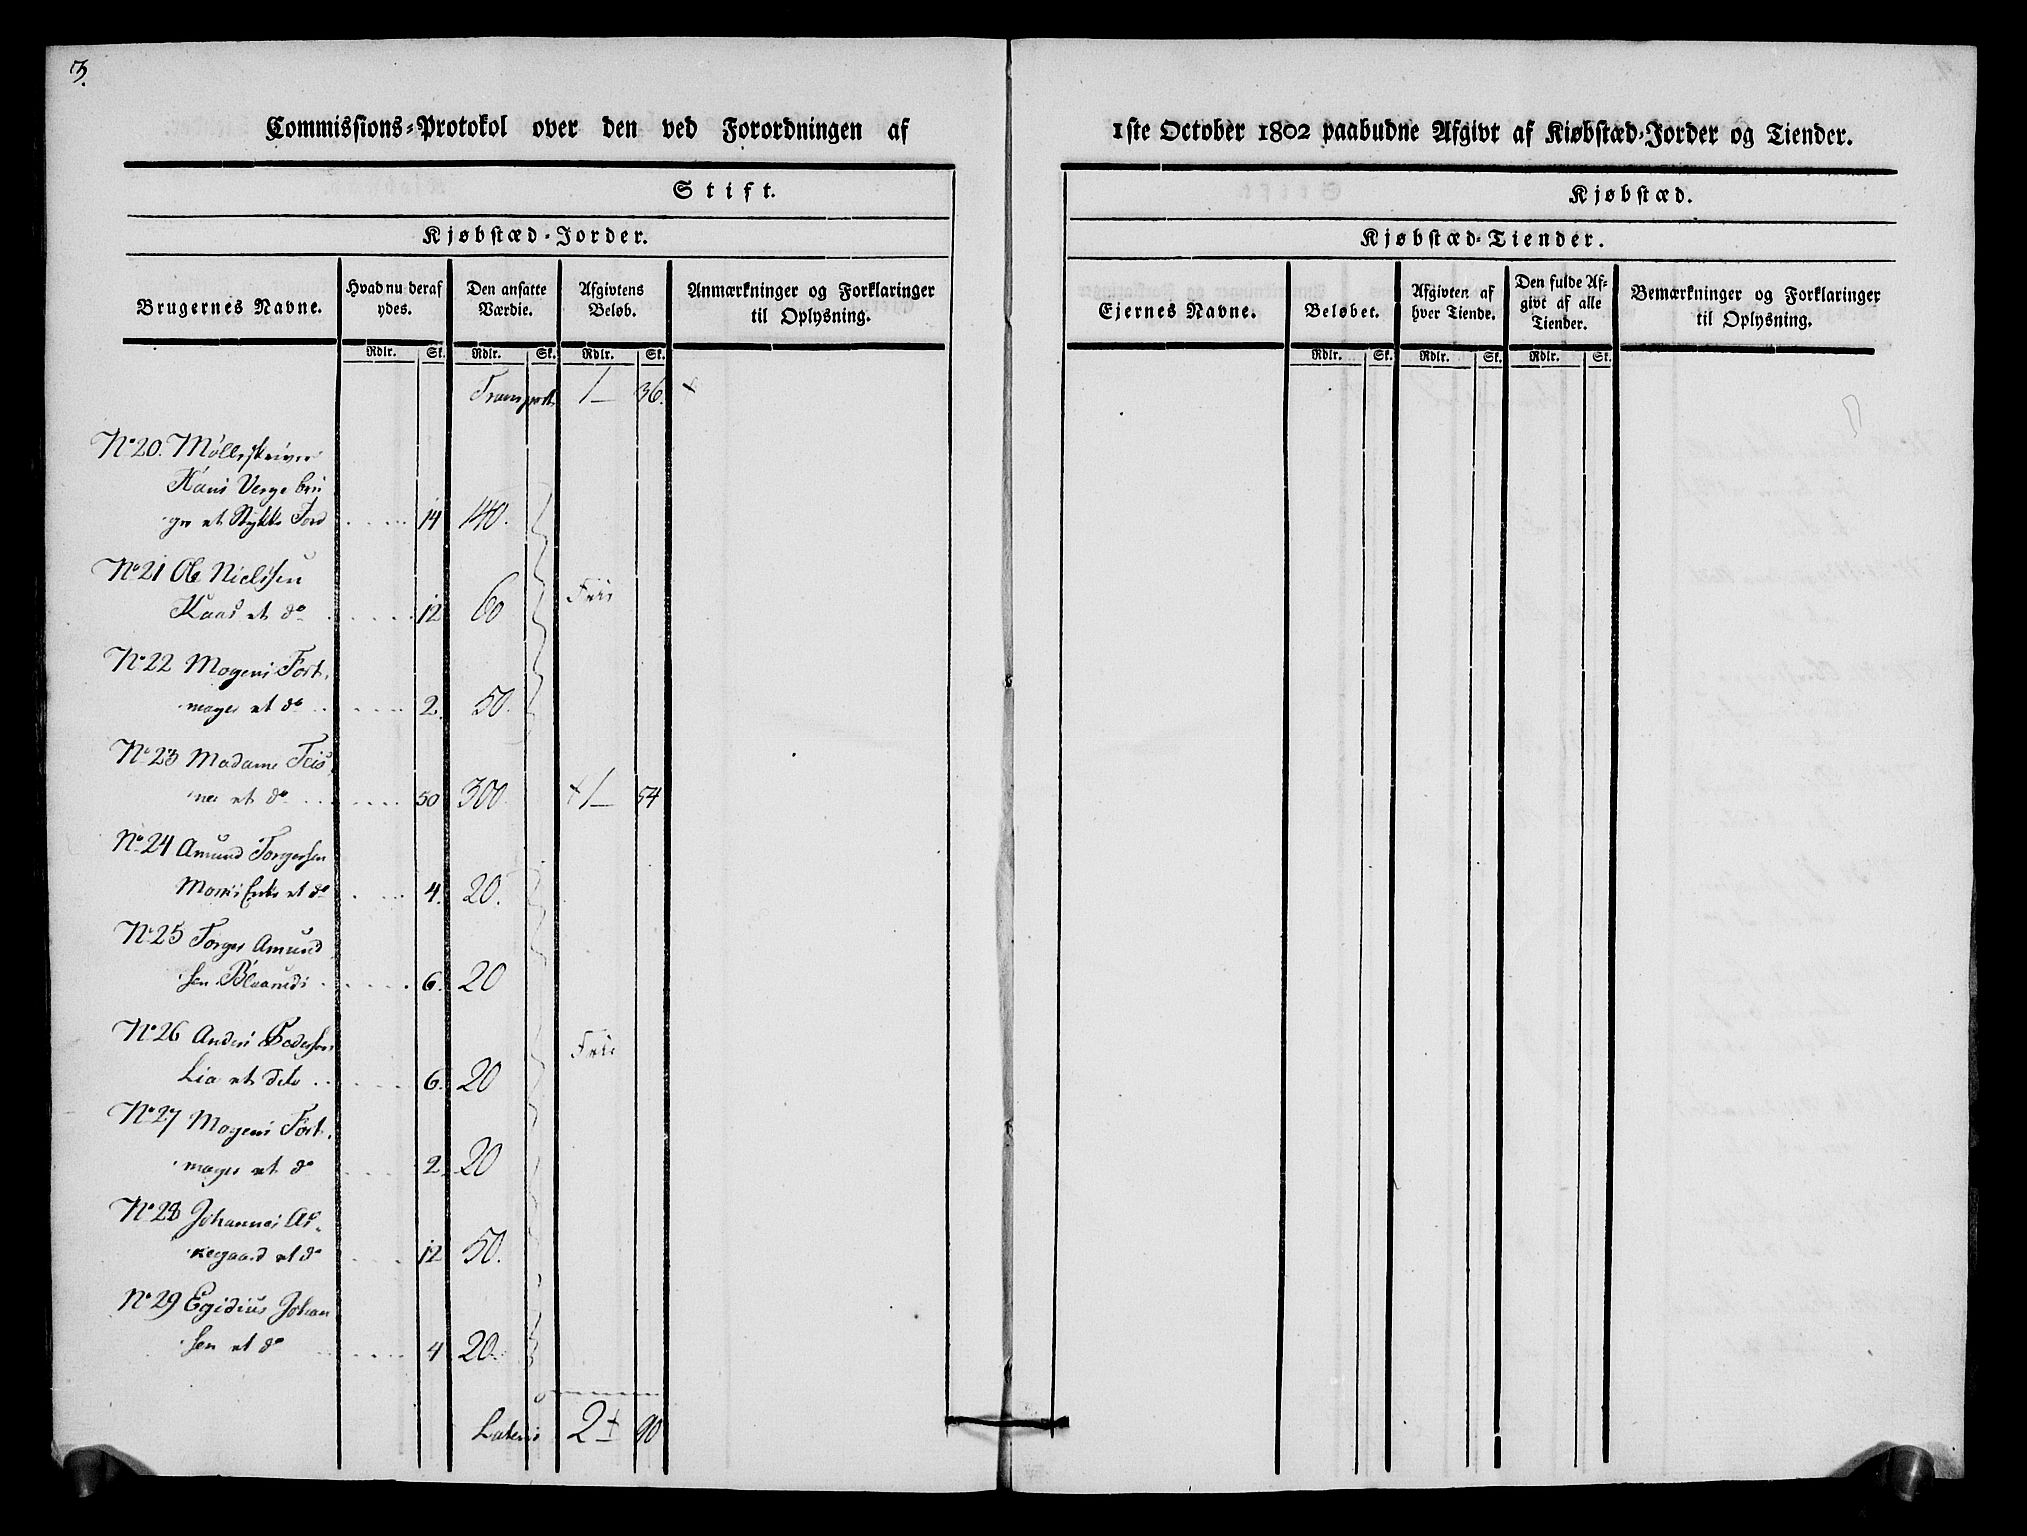 3.
Commissions-Protokol over den ved Forordningen af
1ste October 1802 paabudne Afgivt af Kiøbstæd-Jorder og Tiender.
Stift.
Kjøbstæd.
Kjøbstæd-Jorder.
Kjøbstæd-Tiender.
Brugernes Navne.
Hvad nu deraf ydes.
Den ansatte Værdie.
Afgivtens Beløb.
Anmærkninger og Forklaringer til Oplysning.
Ejernes Navne.
Beløbet.
Afgivten af hver Tiende.
Den fulde Afgivt af alle Tiender.
Bemærkninger og Forklaringer til Oplysning.
Rdlr. Sk. Rdlr. Sk. Rdlr. Sk.
Rdlr. Sk. Rdlr. Sk. Rdlr. Sk.
Transport 1 36.
No 20. Møllerskriver
Hans Verge bru
ger et Stykke Jord 14 140.
No 21 Ole Nielssen
Kaas et do 12 60 Frie
No 22 Mogens Fort-
mager et do 2. 50.
No 23 Madame
et do 50 300. 1 54
No 24 Amund Torgersen
et do 4. 20.
No 25 Torger Amund
sen 6. 20
No 26 Anders Pedersen
Lia et dito 6. 20 Frie
No 27 Mogens Fort-
mager et do 2. 20
No 28 Johannes As-
kegaard et do 12 50.
No 29 Egidius Johan
sen et do 4 20.
Lateris 2 90